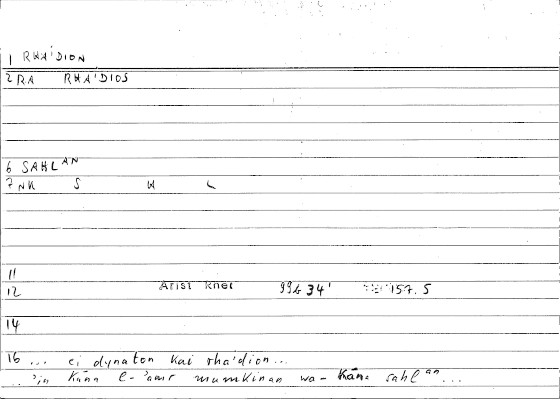 1 RHA'DION
2 RA RHA'DIOS
6 SAHL AN
7 NK S H L
11
12 Arist rhet 99b 34' 157.5
14
16 ... ei dynaton kai rha'dion...
... 'in kāna l-'amr mumkinan wa-kāna sahl an...